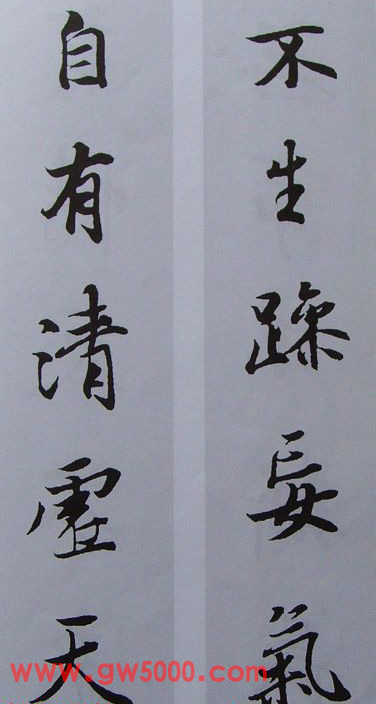 不生躁妄氣
自有清虛天
www.gw5000.com